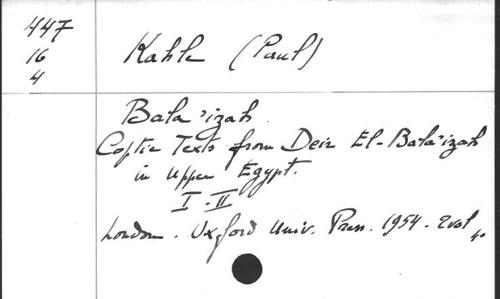 447
16
4
Kahle (Paul)
Bala'izah
Coptic Texts from Deir El-Bala'izah
in Upper Egypt.
I-II
London. Oxford Univ. Press. 1954. 2vol 4°